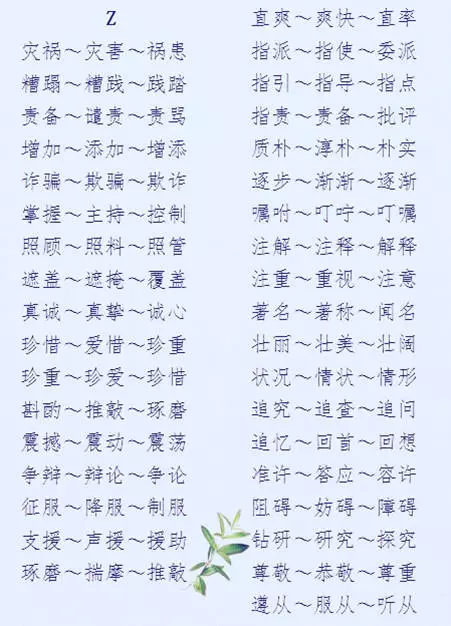 Z
灾祸～灾害～祸患
糟蹋～糟践～践踏
责备～谴责～责骂
增加～添加～增添
诈骗～欺骗～欺诈
掌握～主持～控制
照顾～照料～照管
遮盖～遮掩～覆盖
真诚～真挚～诚心
珍惜～爱惜～珍重
珍重～珍爱～珍惜
斟酌～推敲～琢磨
震撼～震动～震荡
争辩～辩论～争论
征服～降服～制服
支援～声援～援助
琢磨～揣摩～推敲
直爽～爽快～直率
指派～指使～委派
指引～指导～指点
指责～责备～批评
质朴～淳朴～朴实
逐步～渐渐～逐渐
嘱咐～叮咛～叮嘱
注解～注释～解释
注重～重视～注意
著名～著称～闻名
壮丽～壮美～壮阔
状况～情状～情形
追究～追查～追问
追忆～回首～回想
准许～答应～容许
阻碍～妨碍～障碍
钻研～研究～探究
尊敬～恭敬～尊重
遵从～服从～听从